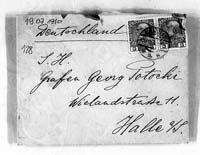 19 07 1910
Deutschland
178
S. H.
Grafen Georg Potocki
Wielandstrasse 11.
Halle a/S.